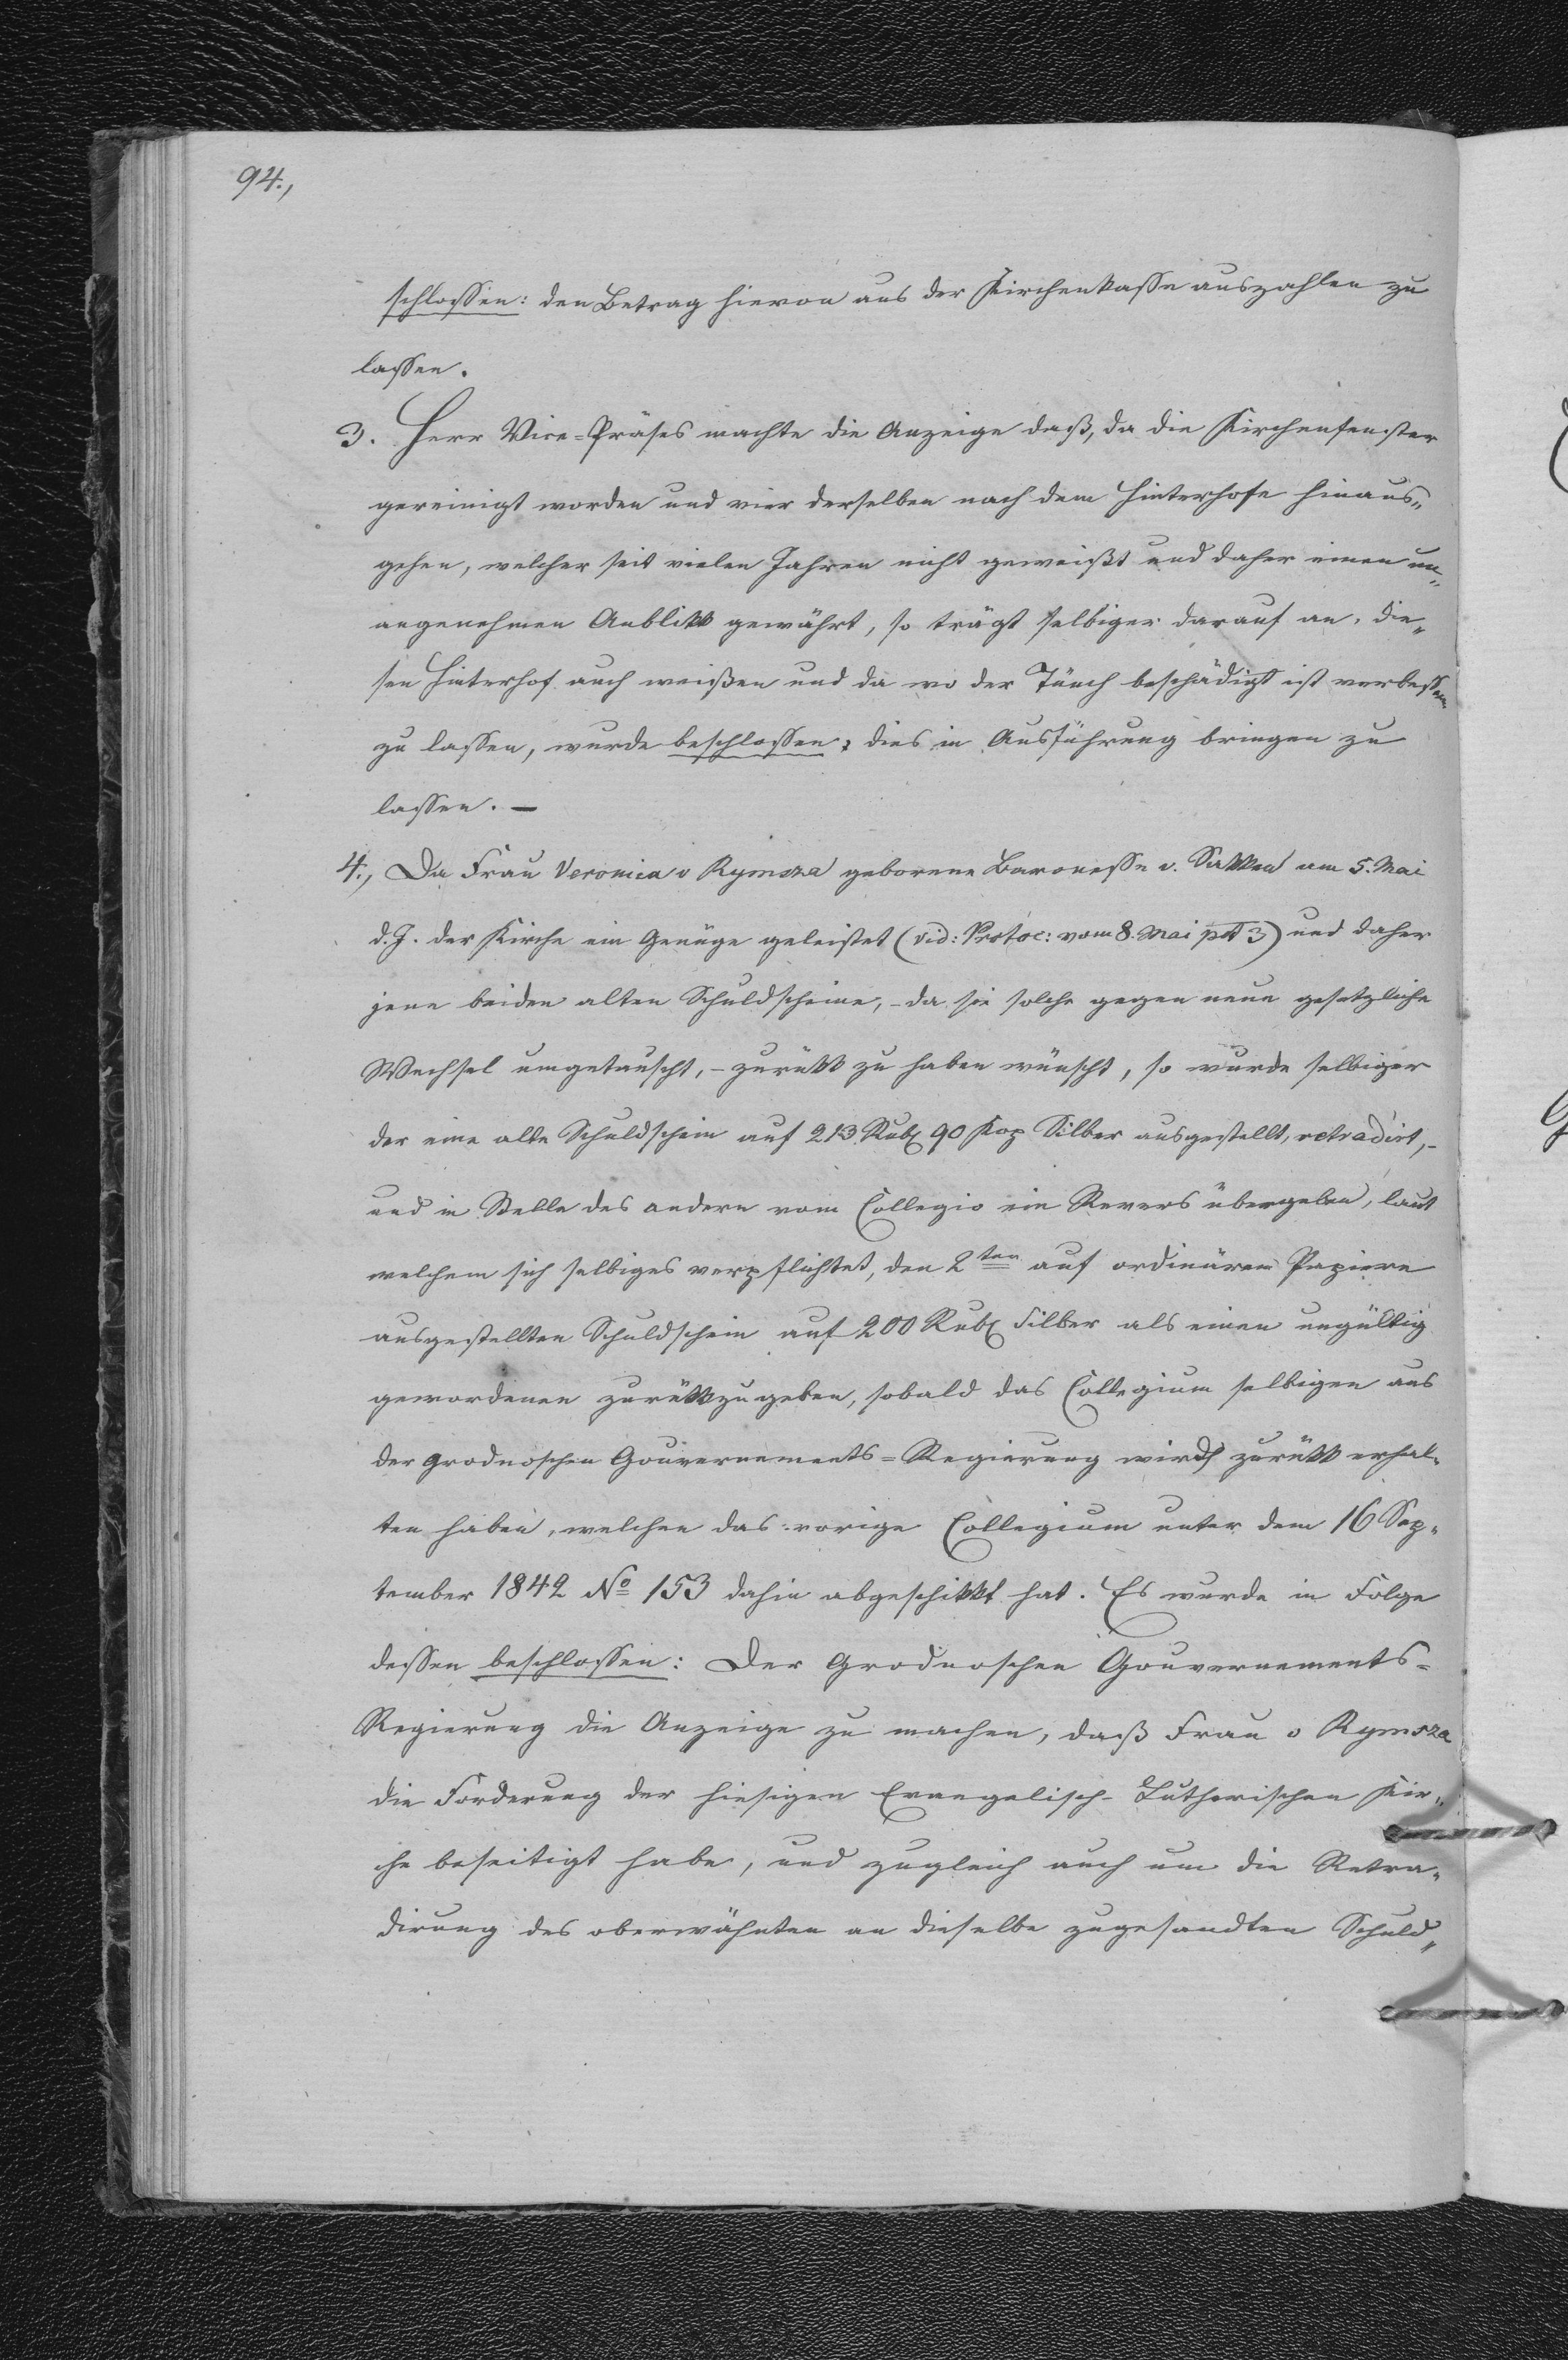 94.,
schlossen: den Betrag hievon aus der Kirchenkasse auszahlen zu
lassen.
3. Herr Vice-Präses machte die Anzeige daß, da die Kirchenfenster
gereinigt worden und vier derselben nach dem Hinterhofe hinaus„
gehen, welcher seit vielen Jahren nicht geweißt und daher einen un„
angenehmen Anblikk gewährt, so trägt selbiger darauf an, die„
sen Hinterhof auch weißen und da wo der Tünch beschädigt ist verbessern
zu lassen, wurde beschlossen: dies in Ausführung bringen zu
lassen. —
4., Da Frau Veronica v Rymsza geborene Baronesse v. Sakken am 5. Mai
d. J. der Kirche ein Genüge geleistet (vid: Protoc: vom 8. Mai pct 3) und daher
jene beiden alten Schuldscheine, - da sie solche gegen neue gesetzliche
Wechsel umgetauscht, - zurükk zu haben wünscht, so wurde selbiger
der eine alte Schuldschein auf 213 Rub. 90 Kop Silber ausgestellt, retradirt, -
und in Stelle des andern vom Collegio ein Revers übergeben, laut
welchem sich selbiges verpflichtet, den 2ten auf ordinärem Papiere
ausgestellten Schuldschein auf 200 Rub. Silber als einen ungültig
gewordenen zurükkzugeben, sobald das Collegium selbigen aus
der Grodnoschen Gouvernements-Regierung wird zurükk erhal„
ten haben, welchen das vorige Collegium unter dem 16 Sep„
tember 1842 No 153 dahin abgeschikkt hat. Es wurde in Folge
dessen beschlossen: Der Grodnoschen Gouvernements-
Regierung die Anzeige zu machen, daß Frau v Rymsza
die Forderung der hiesigen Evangelisch-Lutherischen Kir„
che beseitigt habe, und zugleich auch um die Retra„
dirung des oberwähnten an dieselbe zugesandten Schuld„